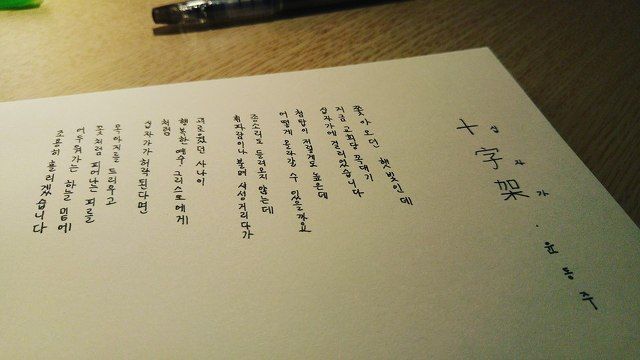 十字架
십자가
· 윤동주
쫓아오던 햇빛인데
지금 교회당 꼭대기
십자가에 걸리었습니다
첨탑이 저렇게도 높은데
어떻게 올라갈 수 있을까요
종소리도 들려오지 않는데
휘파람이나 불며 서성거리다가
괴로웠던 사나이
행복한 예수 그리스도에게
처럼
십자가가 허락된다면
모가지를 드리우고
꽃처럼 피어나는 피를
어두워가는 하늘 밑에
조용히 흘리겠습니다